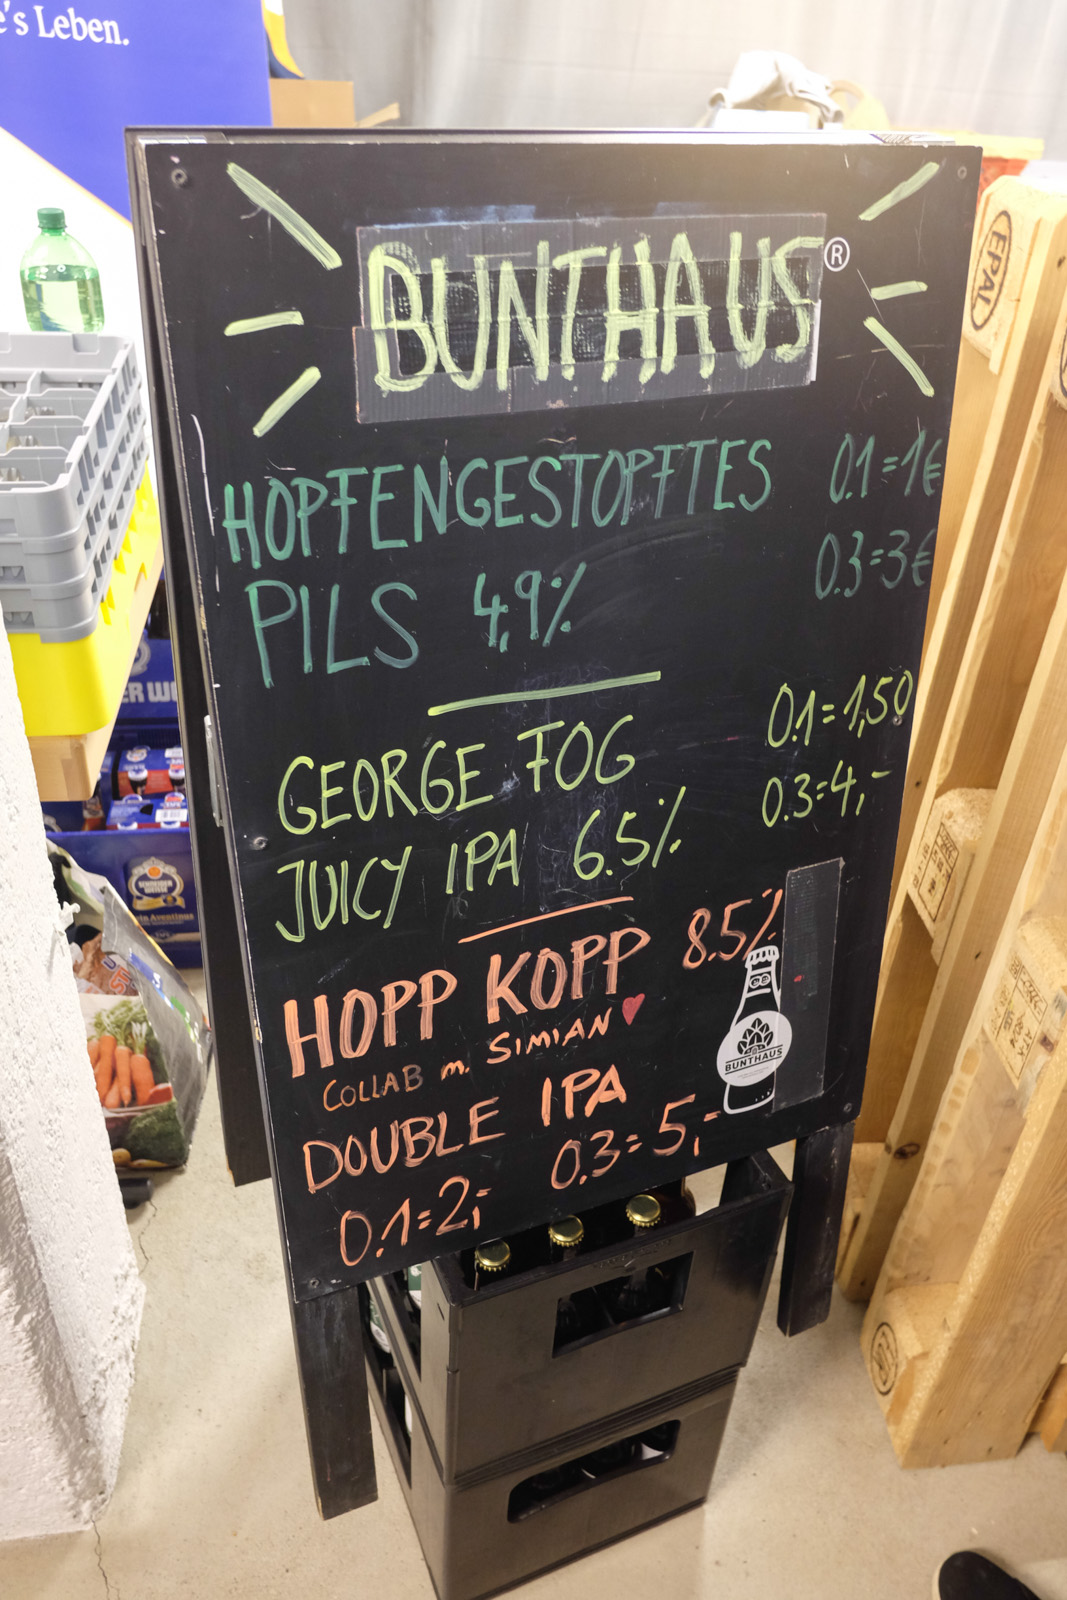 's Leben.
BUNTHAUS®
HOPFENGESTOPFTES 0.1=1€
PILS 4,9% 0.3=3€
GEORGE FOG 0.1=1,50
JUICY IPA 6.5% 0.3=4,-
HOPP KOPP 8.5%
COLLAB m. SIMIAN
DOUBLE IPA
0.1=2,- 0.3=5,-
BUNTHAUS
EPAL
SCHNEIDER
WEISSE
Aventinus